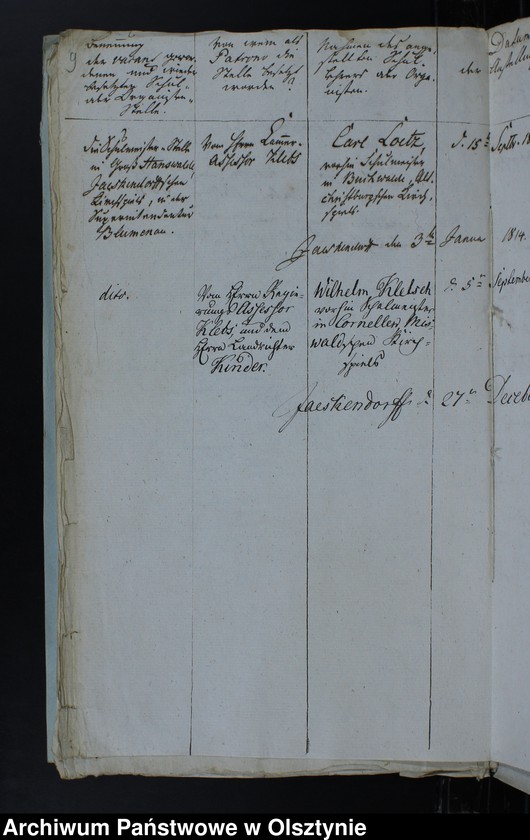 9
Benennung
der vacant gewor-
denen und wieder
besetzten Schul-
oder Organisten-
Stelle.
Von wem als
Patrono die
Stelle besetzt
worden?
Nahmen des ange-
stellten Schul-
lehrers oder Orga-
nisten.
den
Datum
die Schulmeister-Stelle
in Groß Hanswalde,
Jaeskendorffschen
Kirchspiels, in der
Superintendentur
Blumenau.
Vom Herrn
Assessor Klebs
Carl Loetz,
vorhin Schulmeister
in Buchwalde, Alt
christburgschen Kirch-
spiels.
d. 15
Septb. 18
Jaeskendorf den 3
Janua
1814.
dito.
Vom Herrn Regie-
rungs Assessor
Klebs und dem
Herrn Landrichter
Kinder.
Wilhelm Kletsch
vorhin Schulmeister
in Cornellen,
waldschen Kirch-
spiels
d. 5
September
Jaeskendorff d
27
Decemb
Archiwum Państwowe w Olsztynie